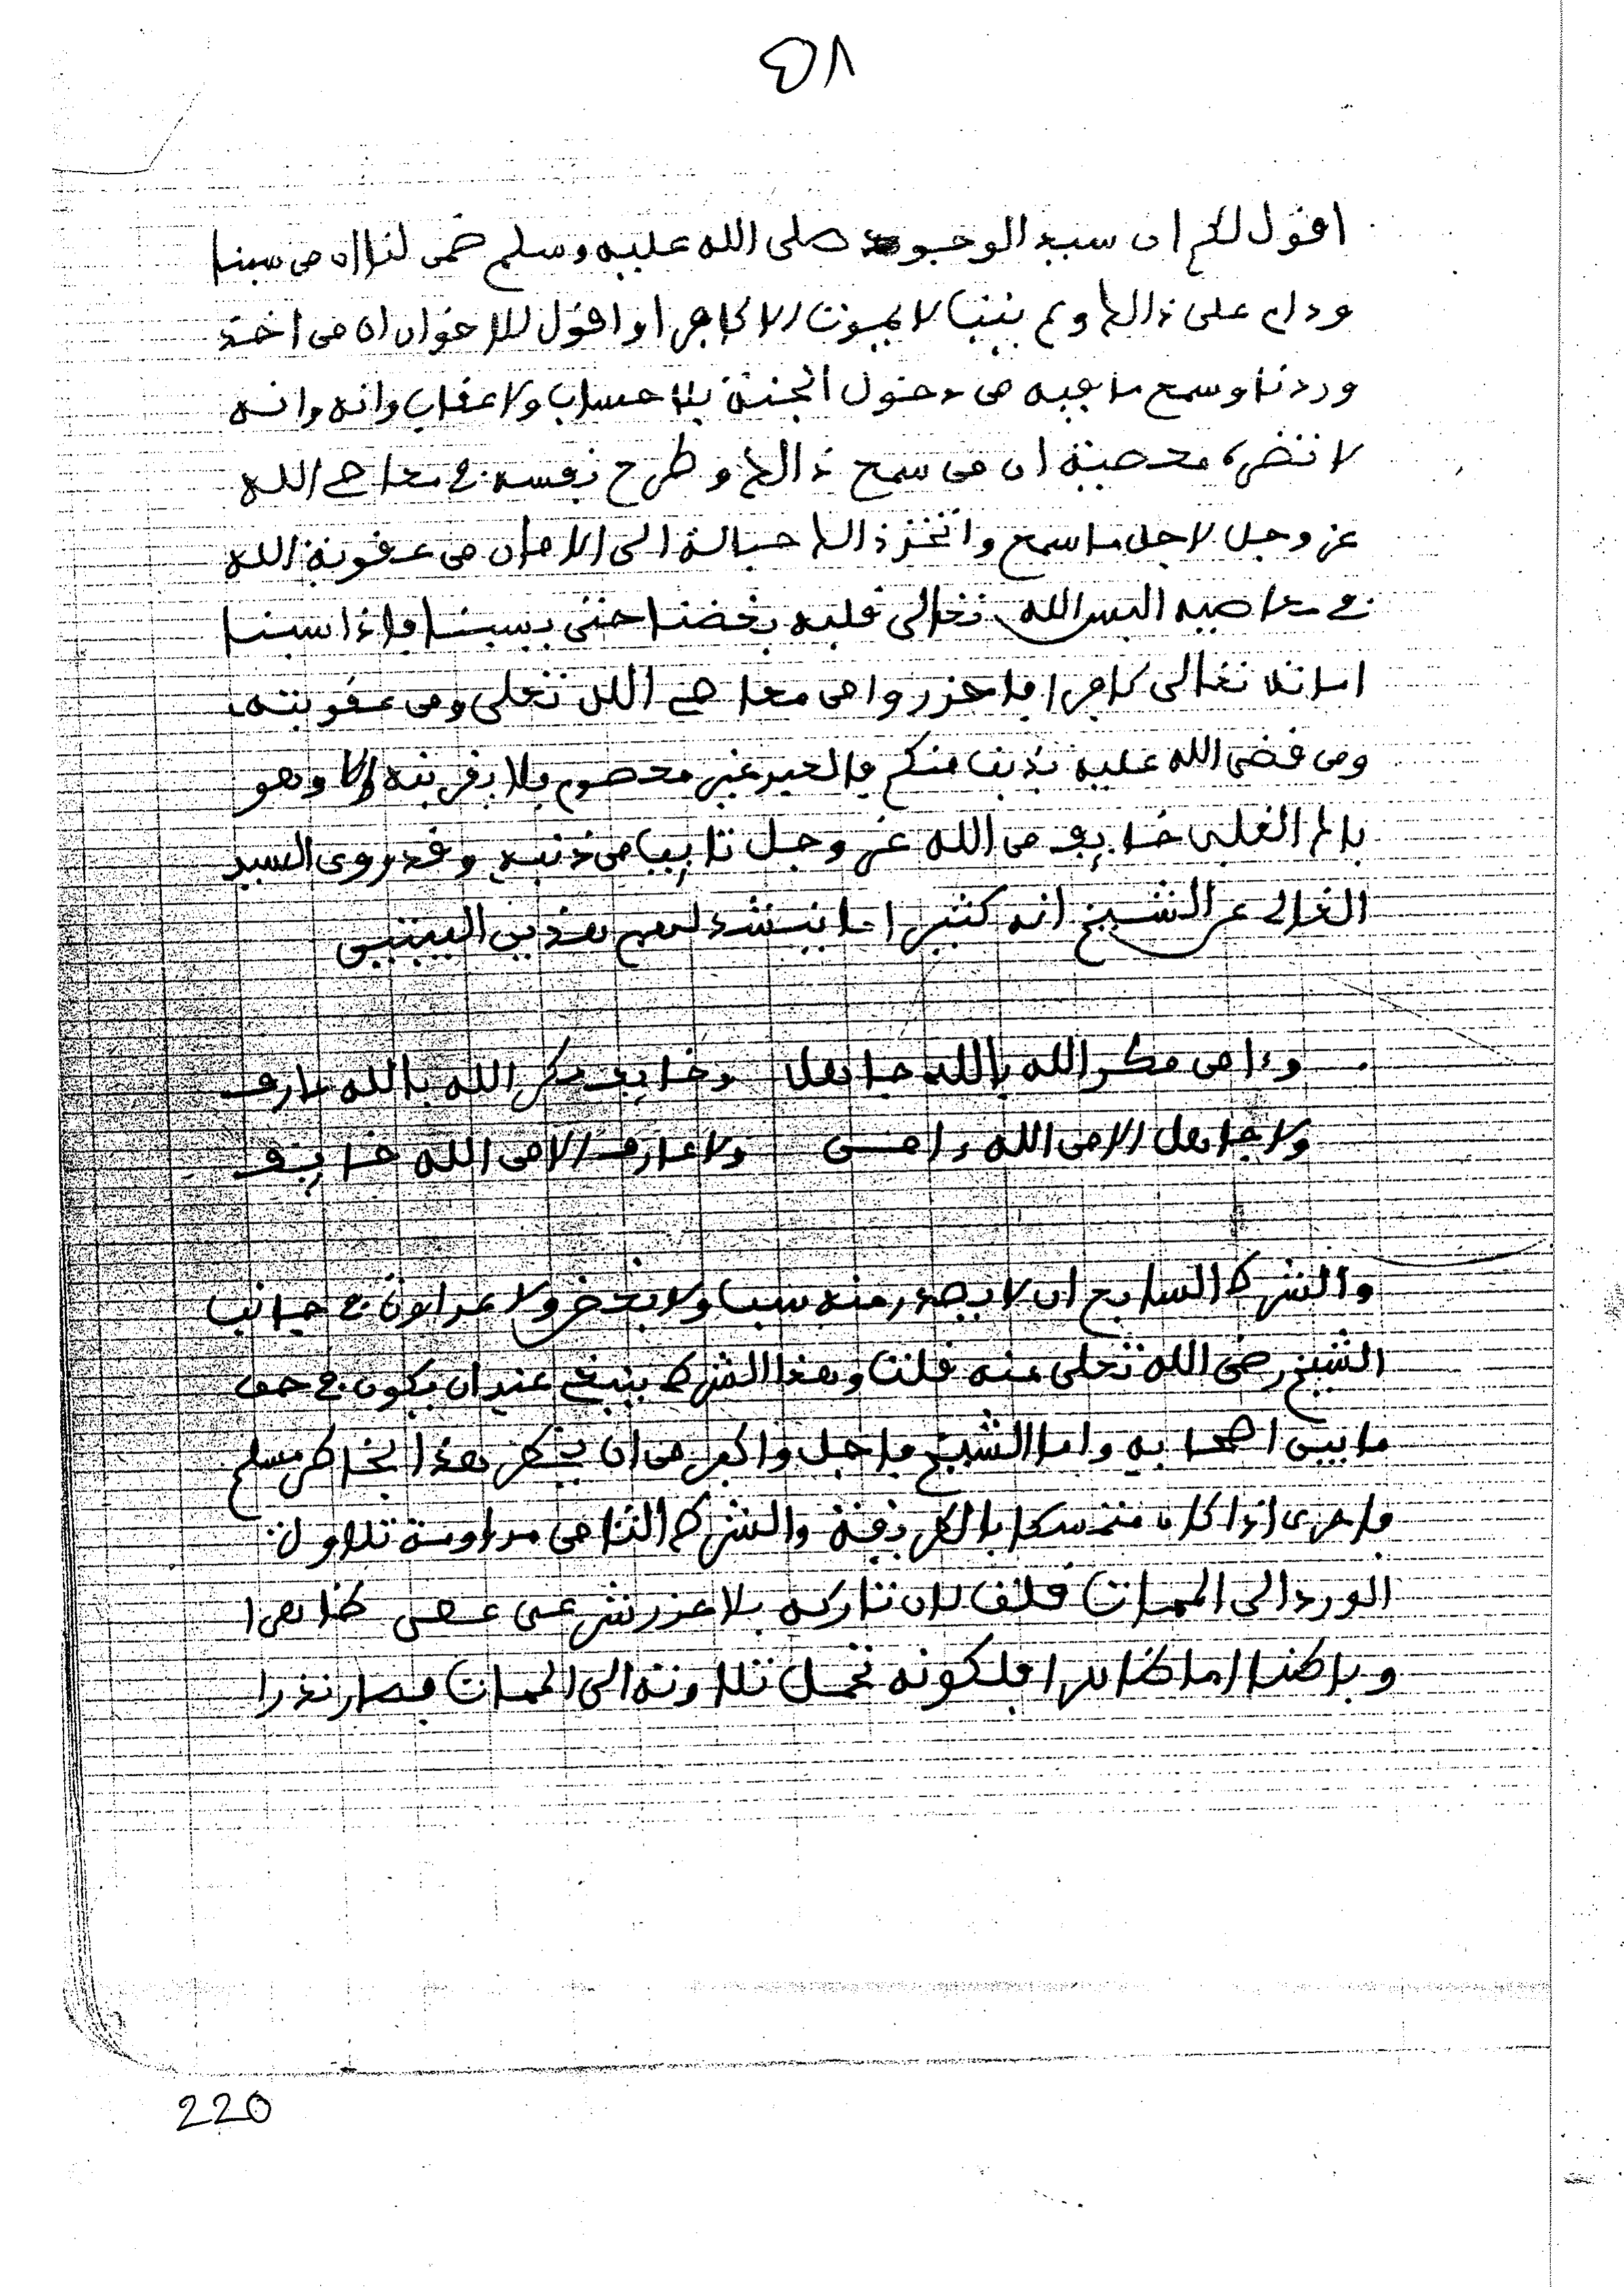 ٤٨
اقول لكم ان سيد الوجود صلى الله عليه وسلم ضمن لنا ان من سبنا
ودام على ذالك ولم يتب لا يموت الا كافرا واقول للاخوان ان من اخذ
وردنا وسمع ما فيه من دخول الجنة بلا حساب ولا عقاب وانه وانه
لا تضره معصية ان من سمع ذالك وطرح نفسه في معاصي الله
عز وجل لاجل ما سمع واتخذ ذالك حبالة الى الامان من عقوبة الله
في معاصيه البس الله تعالى قلبه بغضنا حتى يسبنا فاذا سبنا
اماته تعالى كافرا فاحذروا من معاصي الله تعلى ومن عقوبته
ومن قضى الله عليه بذنب منكم والعبد غير معصوم فلا يقربنه الا وهو
باكي القلب خايف من الله عز وجل تايبا من ذنبه وقد روى السيد
الغالي عن الشيخ انه كثيرا ما ينشد لهم هذين البيتين
وءامن مكر الله بالله جاهل وخايف مكر الله بالله عارف
ولا جاهل الا من الله ءامن ولا عارف الا من الله خايف
والشرط السابع ان لا يصدر منه سب ولا بغض ولا عداوة في جانب
الشيخ رضي الله تعلى عنه قلت وهذا الشرط ينبغي عند ان يكون في حق
ما بين اصحابه واما الشيخ فاجل واكبر من ان يخطر هذا بخاطر مسلم
فاحرى اذا كان متمسكا بالطريقة والشرط الثامن مداومة تلاوة
الورد الى الممات قلت لان تاركه بلا عذر شرعي عصى ظاهرا
وباطنا اما ظاهرا فلكونه تحمل تلاوته الى الممات فصار نذرا
220